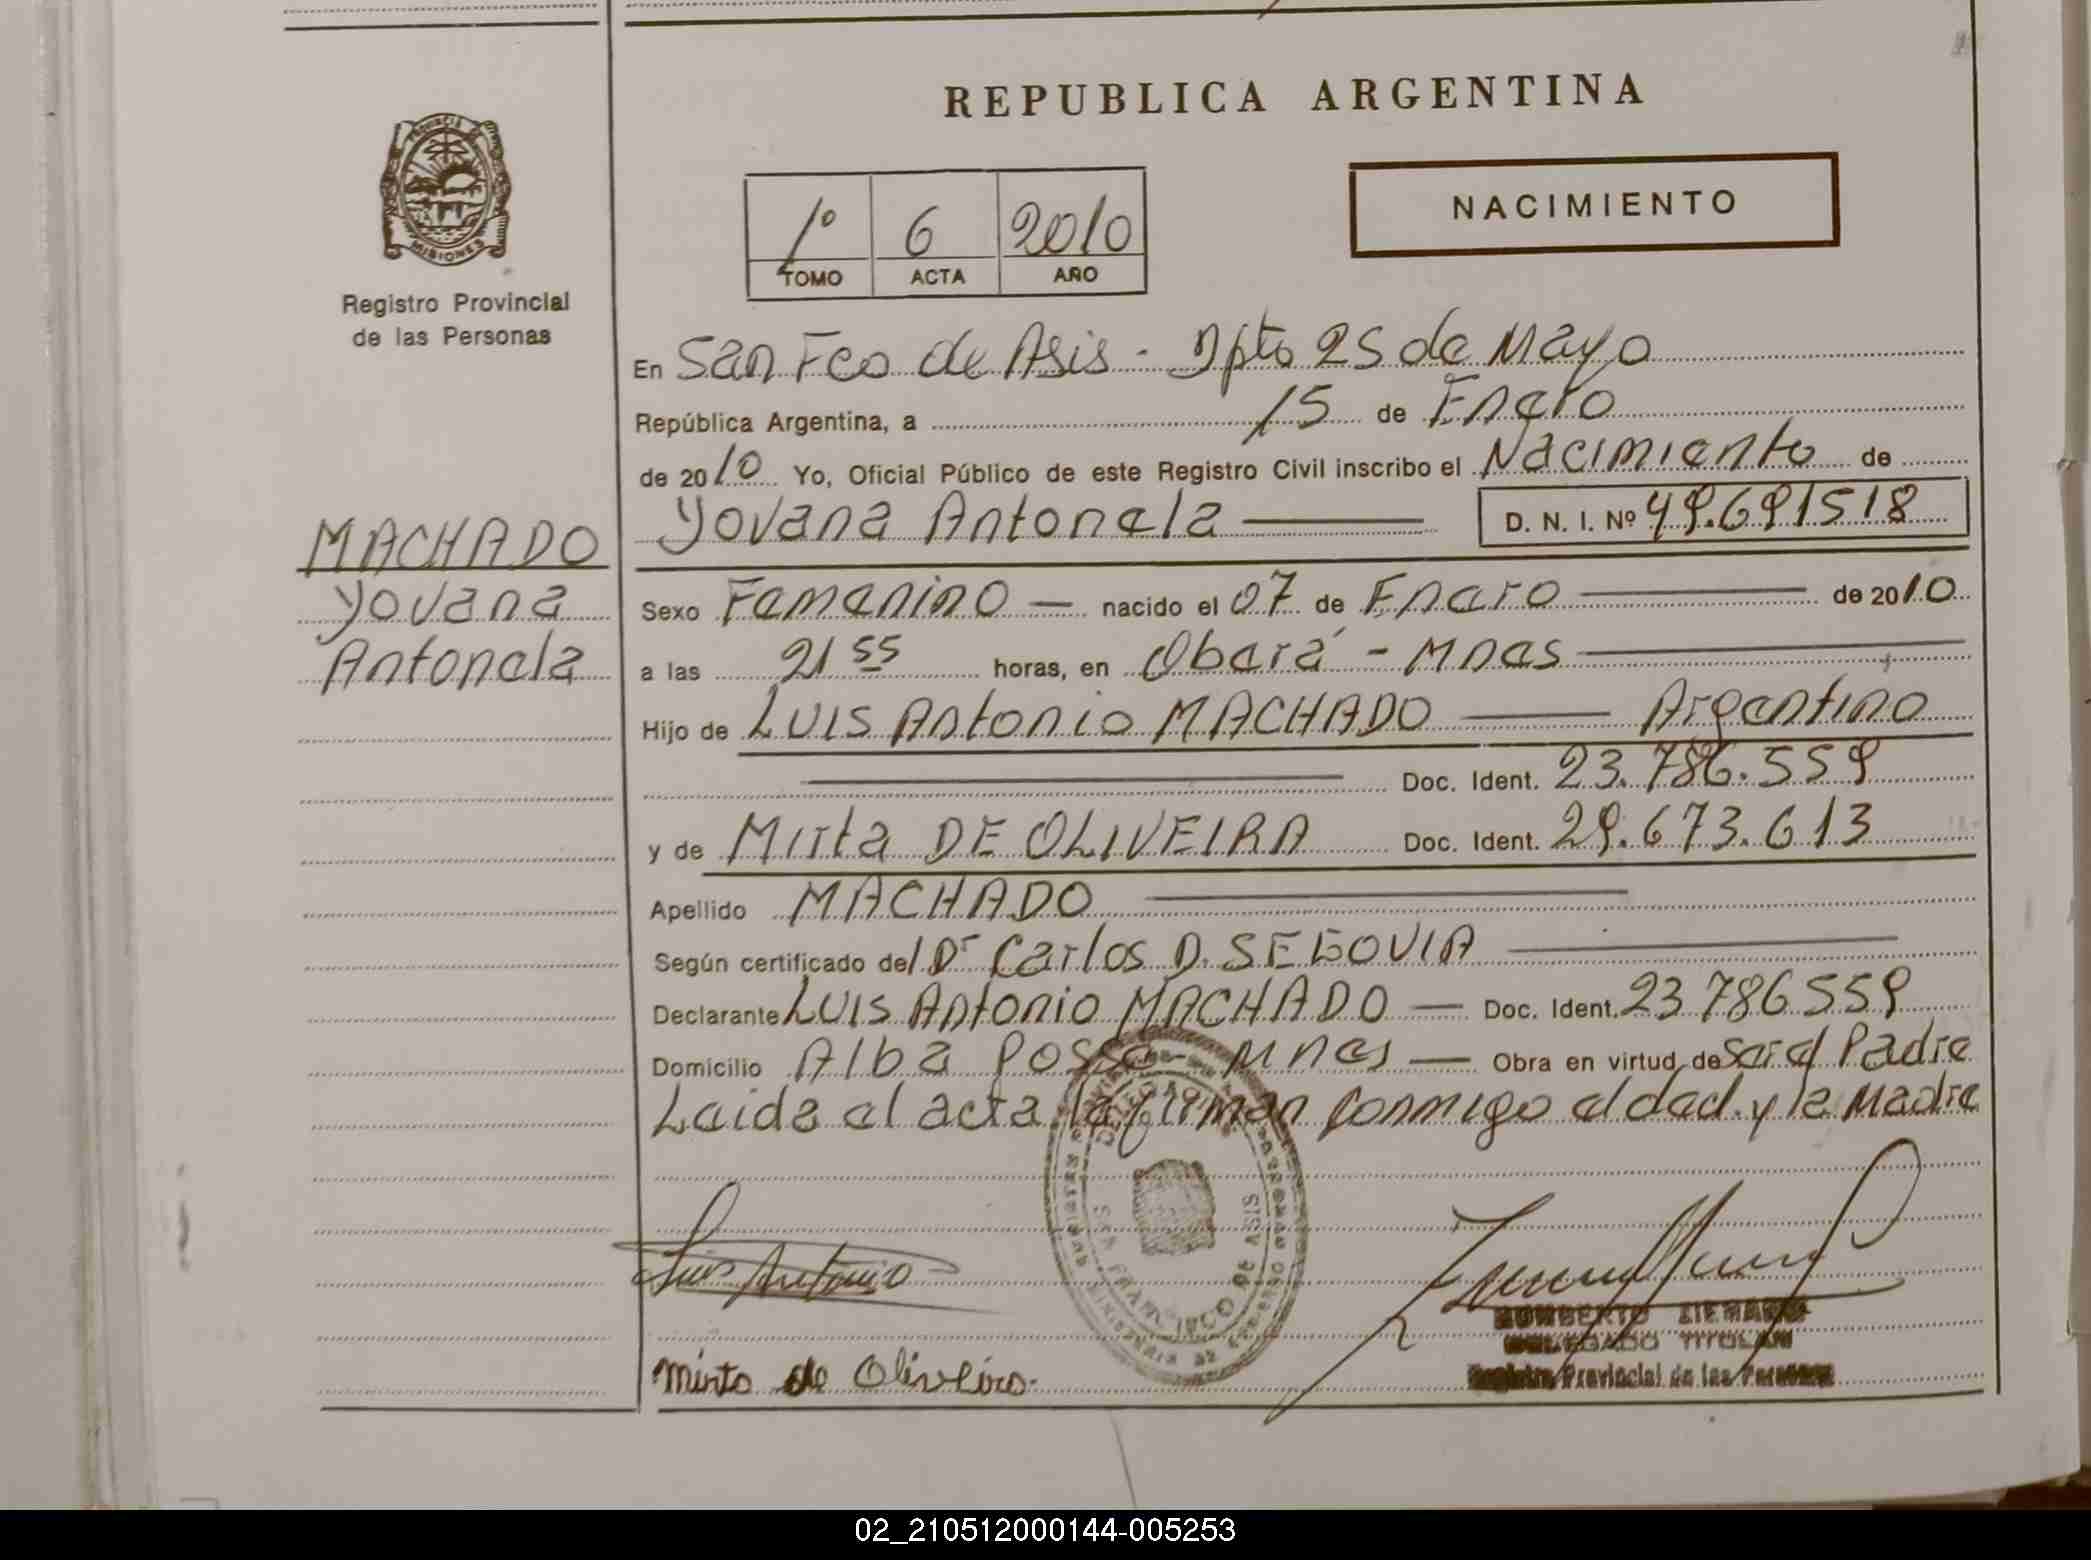 REPUBLICA ARGENTINA
PROVINCIA DE
MISIONES
Registro Provincial
de las Personas
1º 6 2010
TOMO ACTA AÑO
NACIMIENTO
En San Fco de Asis - Dpto 25 de Mayo
República Argentina, a 15 de Enero
de 2010 Yo, Oficial Público de este Registro Civil inscribo el Nacimiento de
Yovana Antonela D. N. I. Nº 49.691518
MACHADO
Yovana
Antonela
Sexo Femenino nacido el 07 de Enero de 2010
a las 21 55 horas, en Oberá - Mnes
Hijo de Luis Antonio MACHADO Argentino
Doc. Ident. 23.786.559
y de Mirta DE OLIVEIRA Doc. Ident. 29.673.613
Apellido MACHADO
Según certificado del Dr Carlos D. SEGOVIA
Declarante Luis Antonio MACHADO Doc. Ident. 23786559
Domicilio Alba Posse - Mnes Obra en virtud de Ser el Padre
Leida el acta la firman conmigo el dec. y la Madre
Luis Antonio
SAN FRANCISCO DE ASIS
DELEGADO TITULAR
Registro Provincial de las Personas
Mirta de Oliveira.
02_210512000144-005253